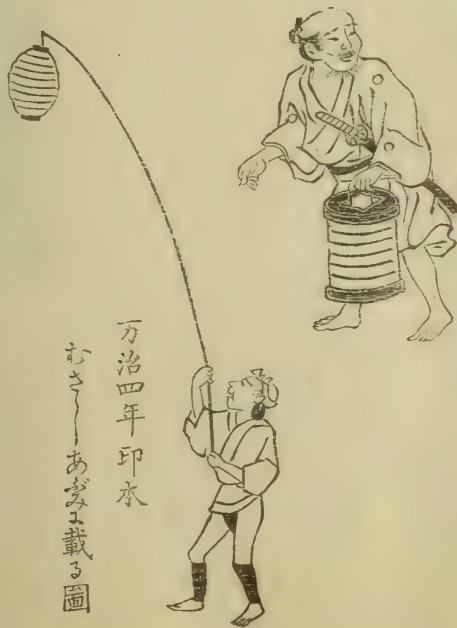 万治四年印本
むさしあぶみに載る圖